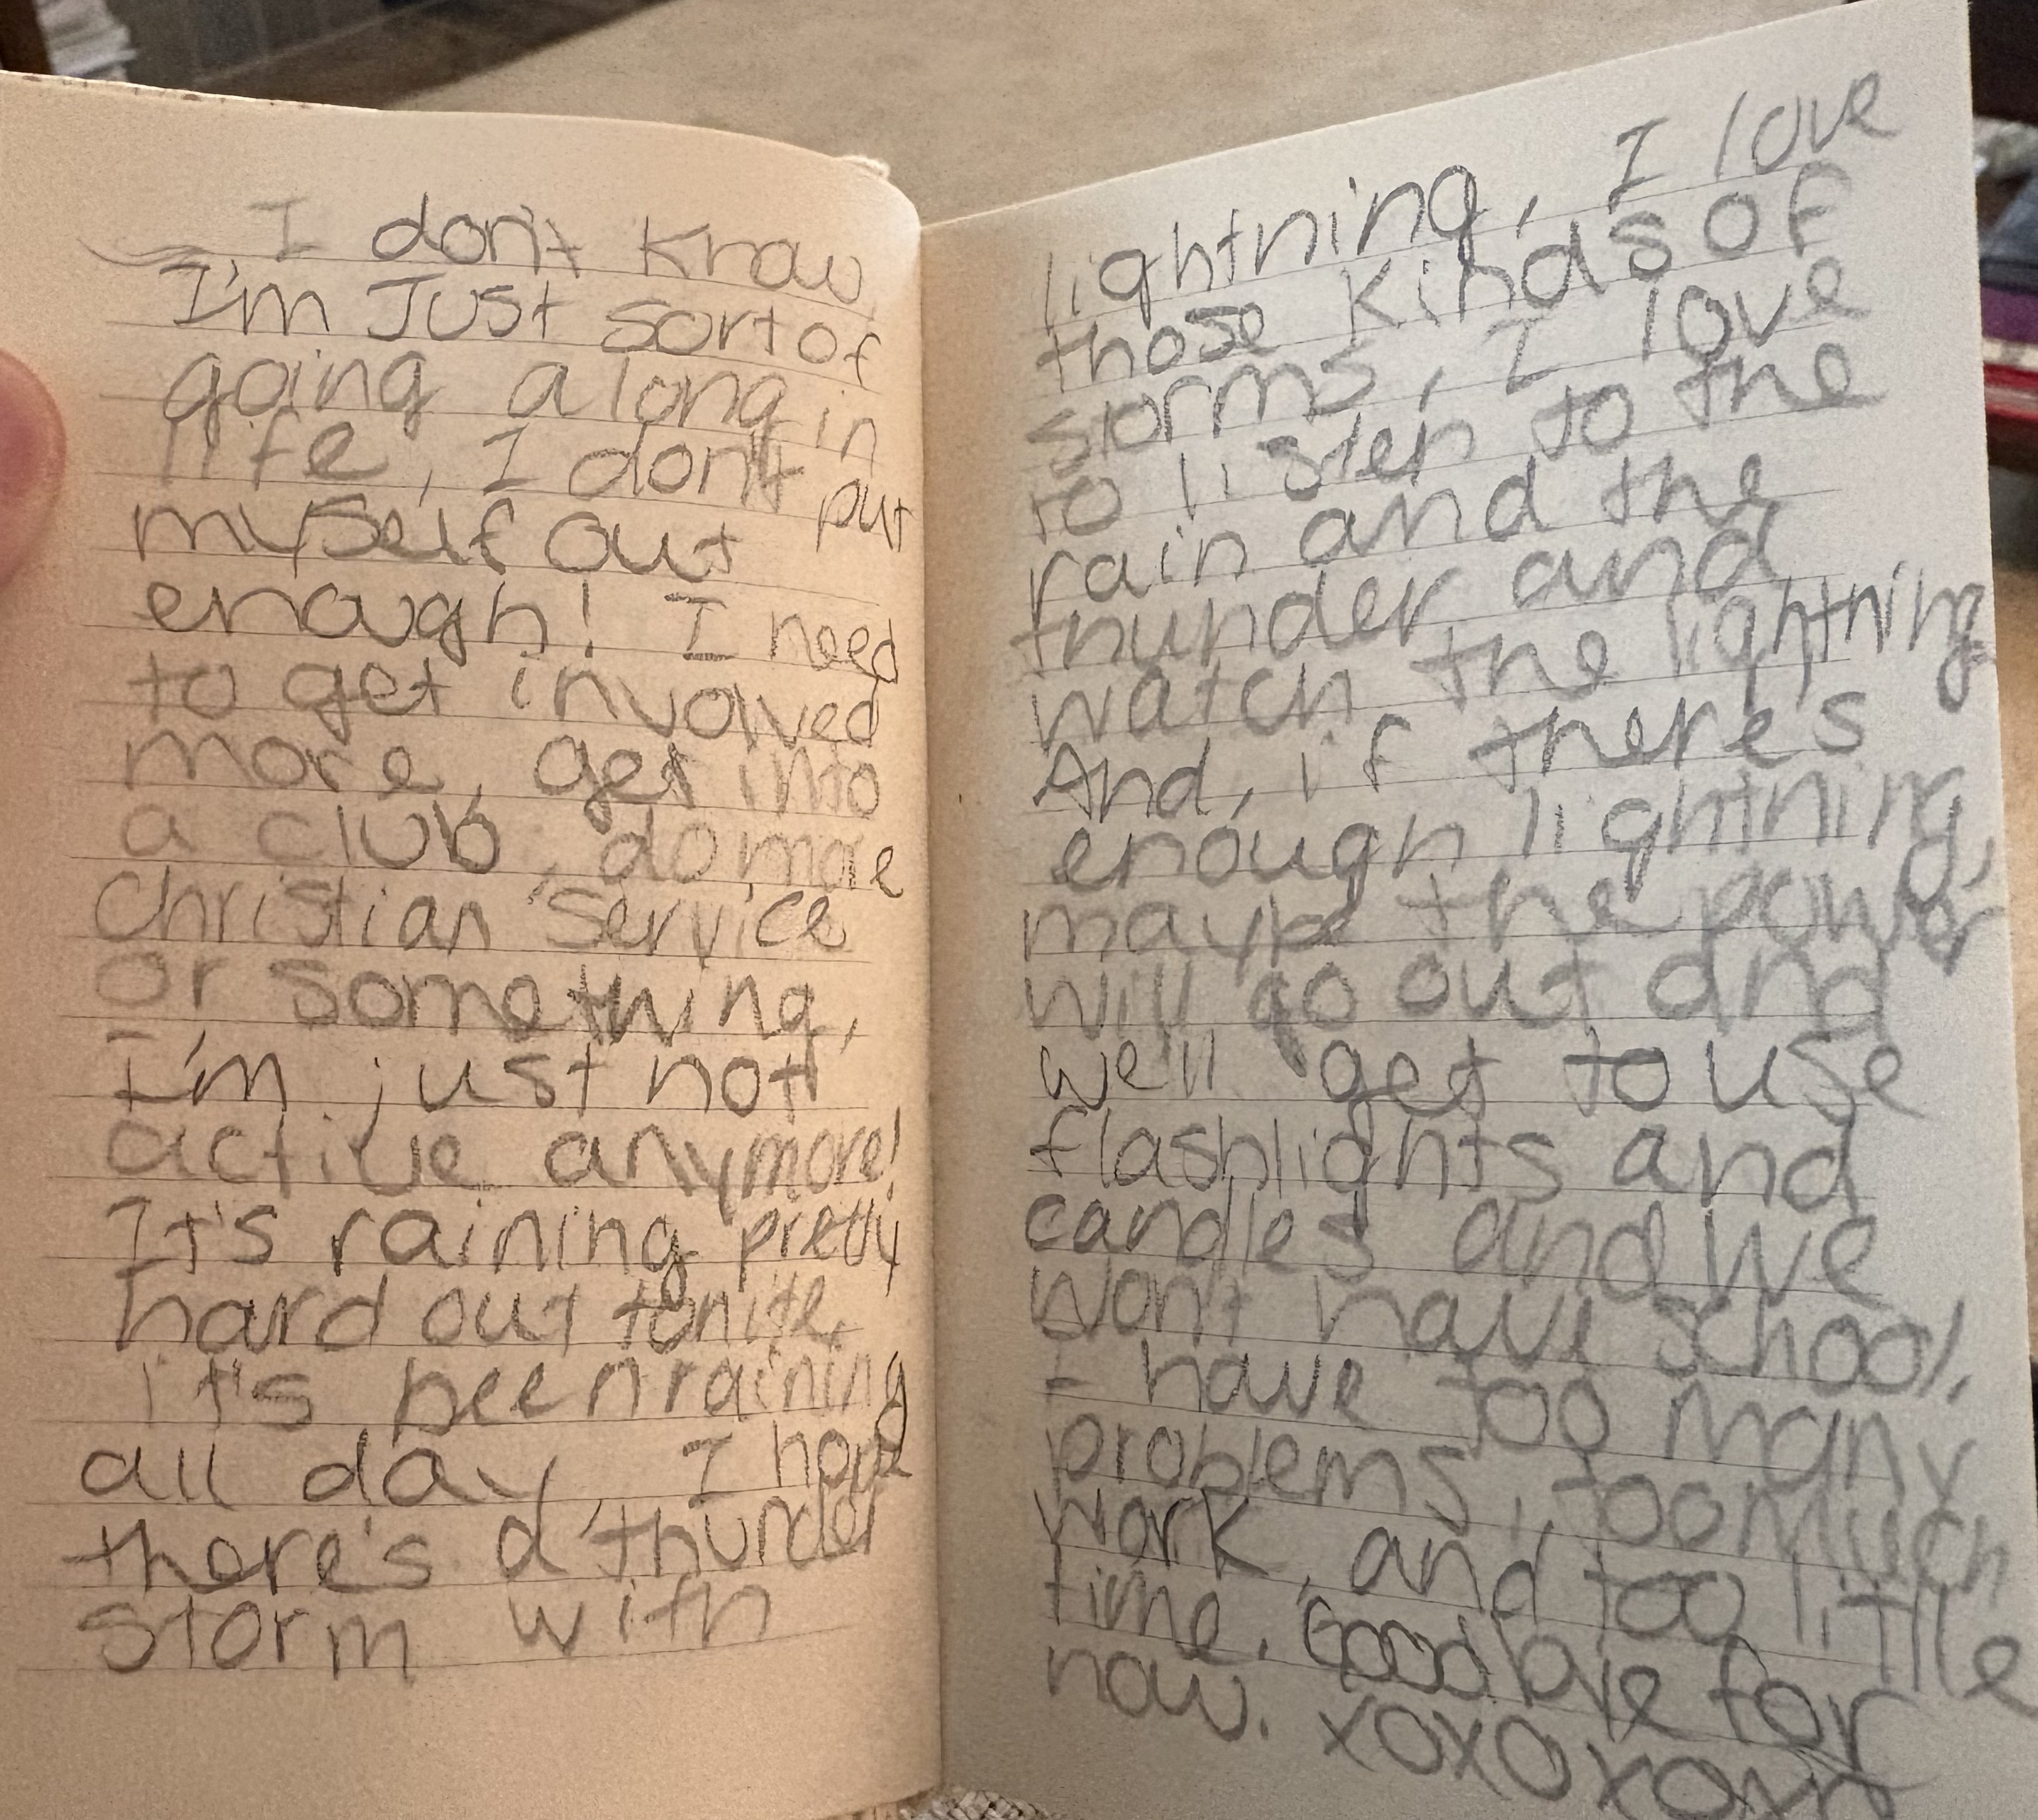 I don't know,
I'm Just sort of
going along in
life, I don't put
myself out
enough! I need
to get involved
more, get into
a club, do more
Christian Service
or something,
I'm just not
active anymore!
It's raining pretty
hard out tonite,
it's been raining
all day I hope
there's a thunder
storm with
lightning, I love
those kinds of
storms, I love
to listen to the
rain and the
thunder and
watch the lightning
And, if there's
enough lightning,
maybe the power
will go out and
we'll get to use
flashlights and
candles and we
won't have school.
I have too many
problems, too much
work, and too little
time. Goodbye for
now. XOXOXOXO